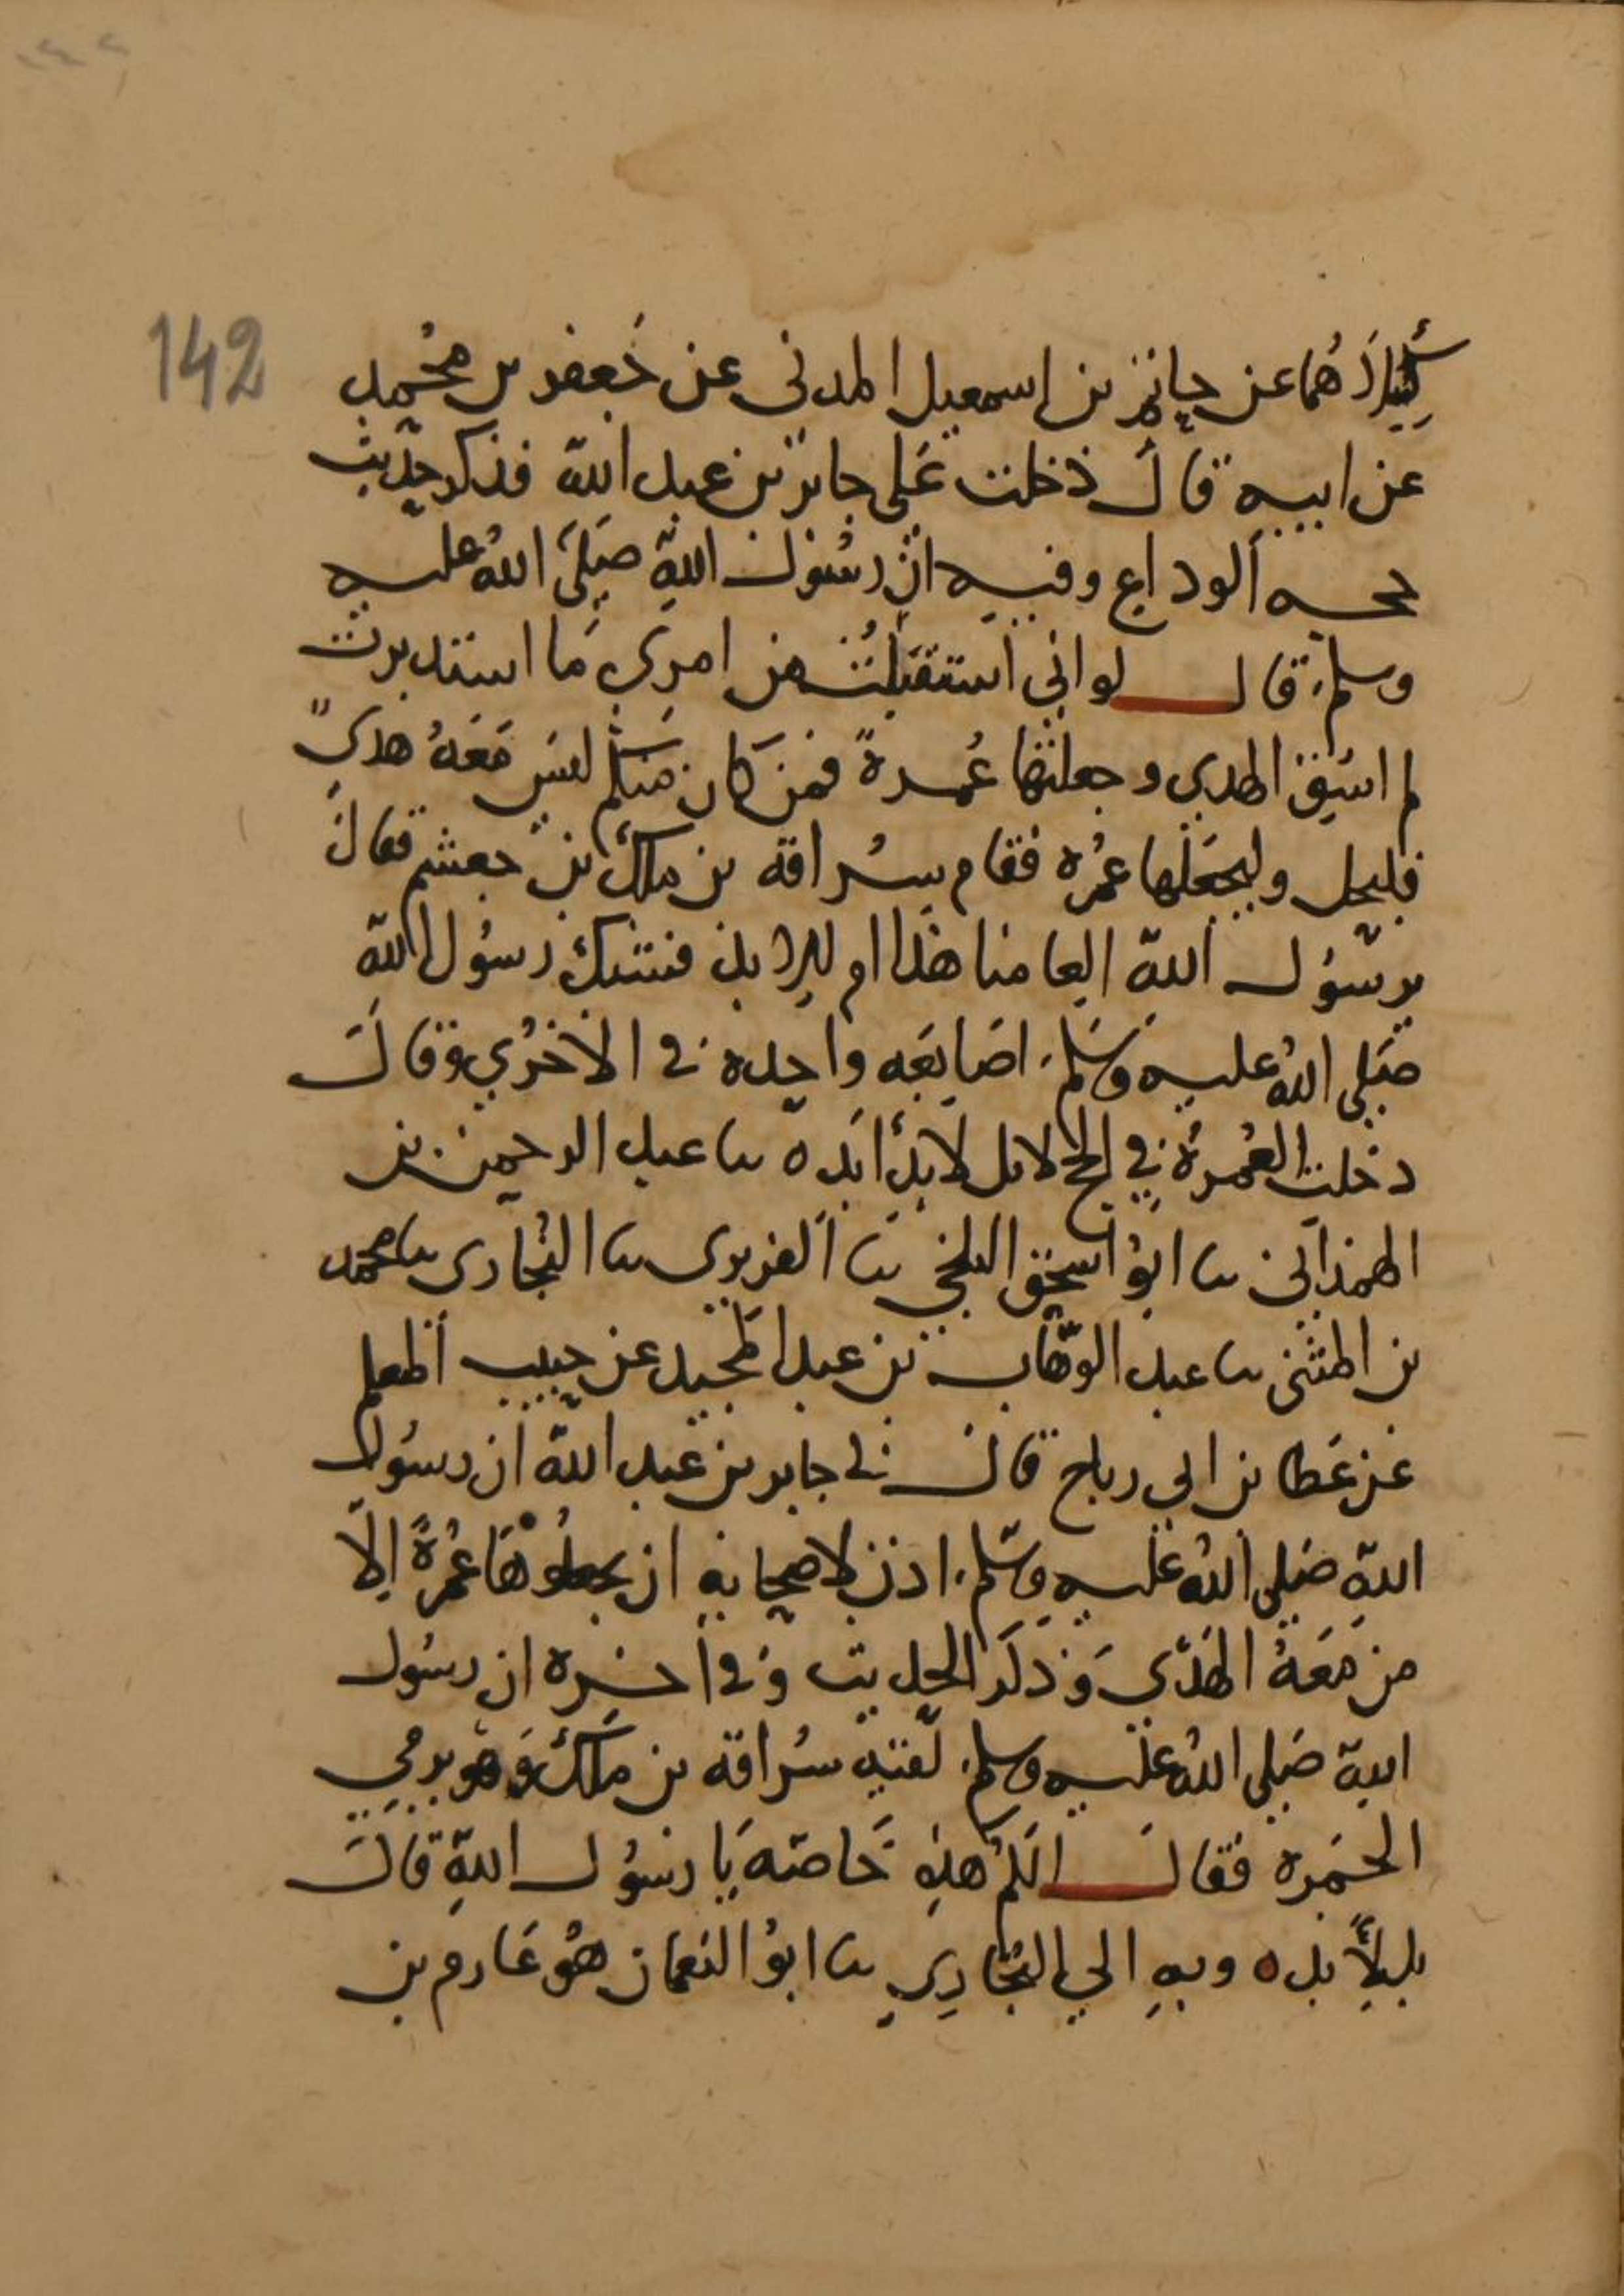 142
كلاهما عن حاتم بن اسمعيل المدني عن جعفر بن محمد
عن ابيه قال دخلت على جابر بن عبد الله فذكر حديث
حجه الوداع وفيه ان رسول الله صلى الله عليه
وسلم قال لو اني استقبلت من امري ما استدبرت
لم اسق الهدي وجعلتها عمرة فمن كان منكم ليس معه هدي
فليحل وليجعلها عمره فقام سراقة بن ملك بن جعشم فقال
يرسول الله العامنا هذا ام للابد فشبك رسول الله
صلى الله عليه وسلم اصابعه واحده في الاخرى وقال
دخلت العمرة في الحج لا بل لابد ابد ه نا عبد الرحمن بن
الهمذاني نا ابو اسحق البلخي نا الفربري نا البخاري نا محمد
بن المثنى نا عبد الوهاب بن عبد المجيد عن حبيب المعلم
عن عطا بن ابي رباح قال ني جابر بن عبد الله ان رسول
الله صلى الله عليه وسلم اذن لاصحابه ان يجعلوها عمرة الا
من معه الهدي وذكر الحديث وفي اخره ان رسول
الله صلى الله عليه وسلم لقيه سراقة بن ملك وهو يرمي
الجمره فقال الكم هذه خاصة يا رسول الله قال
بل لابد ه وبه الي البخاري نا ابو النعمان هو عارم بن